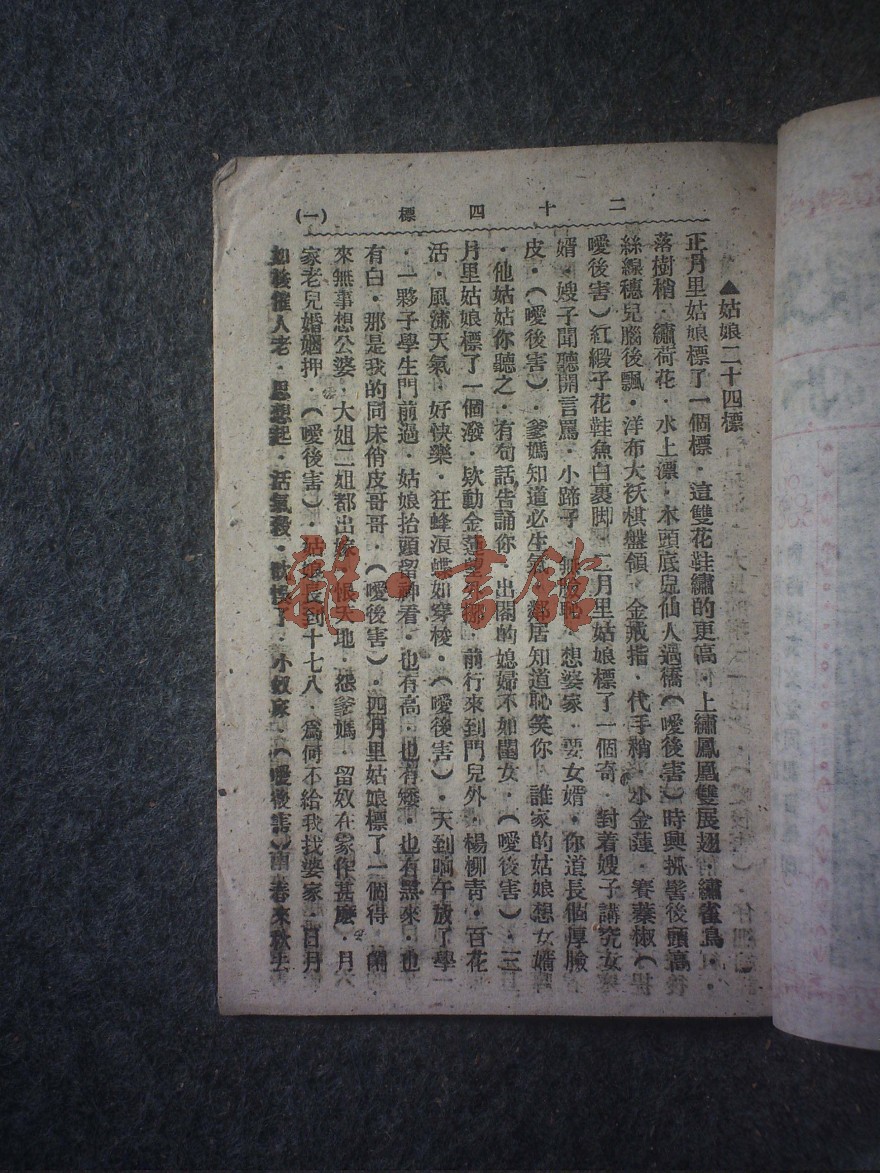 二十四標 (一)
▲姑娘二十四標
正月里姑娘標了一個標·這雙花鞋繡的更高·上繡鳳凰雙展翅·繡雀鳥·
落樹梢·繡荷花·水上漂·木頭底兒仙人過橋(噯後害)時興抓髻後頭高
絲線穗兒腦後飄·洋布大袄棋盤領·金戒指·代手稍·小金蓮·賽蓁椒(
噯後害)紅緞子花鞋魚白裹脚·二月里姑娘標了一個奇·對着嫂子講究女
婿·嫂子聞聽開言罵·小蹄子·無臉恥·想婆家·要女婿·你道長個厚臉
皮·(噯後害)·爹媽知道必生氣·鄰居知道恥笑你·誰家的姑娘想女婿
·他姑姑你聽之·有句話告誦你·出閣的媳婦不如閨女·(噯後害)·三
月里姑娘標了一個潑·欵動金蓮 外挪·前行來到門兒外·楊柳青·百花
活·風流天氣·好快樂·狂蜂浪蝶如穿梭·(噯後害)·天到晌午放了學
·一夥子學生門前過·姑娘抬頭留神看·也有高·也有矮·也有黑來·也
有白·那是我的同床俏皮哥哥·(噯後害)·四月里姑娘標了一個得·閑
來無事想公婆·大姐二姐都出嫁·恨天地·怨爹媽·留奴在家作甚麼·月
家老兒婚姻押·(噯後害)·姑娘長到十七八·爲何不給我找婆家·日月
如梭催人老·思想起·活氣殺·躭悞了·小奴家·(噯後害)南 春來秋去
龍·書館